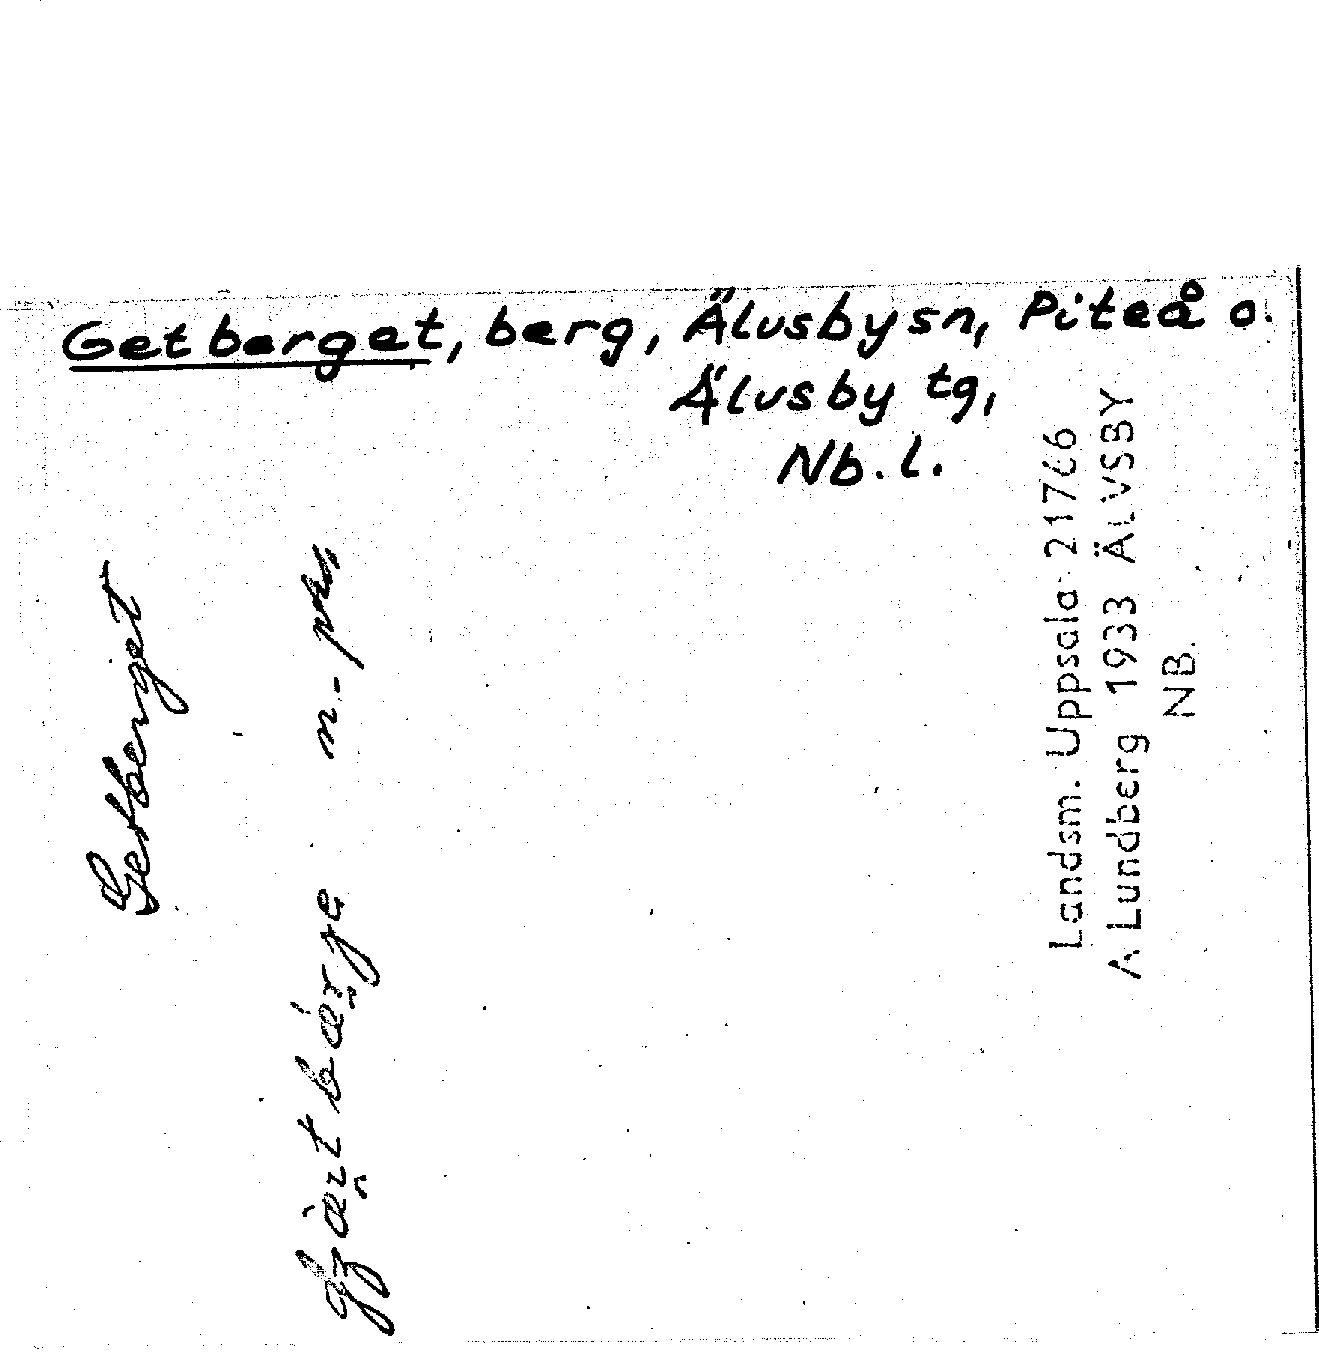 Getberget, berg, Älvsby sn, Piteå o.
Älvsby tg,
Nb. l.
Getberget
n. pks
Landsm. Uppsala 21766
A Lundberg 1933 ÄLVSBY
NB.